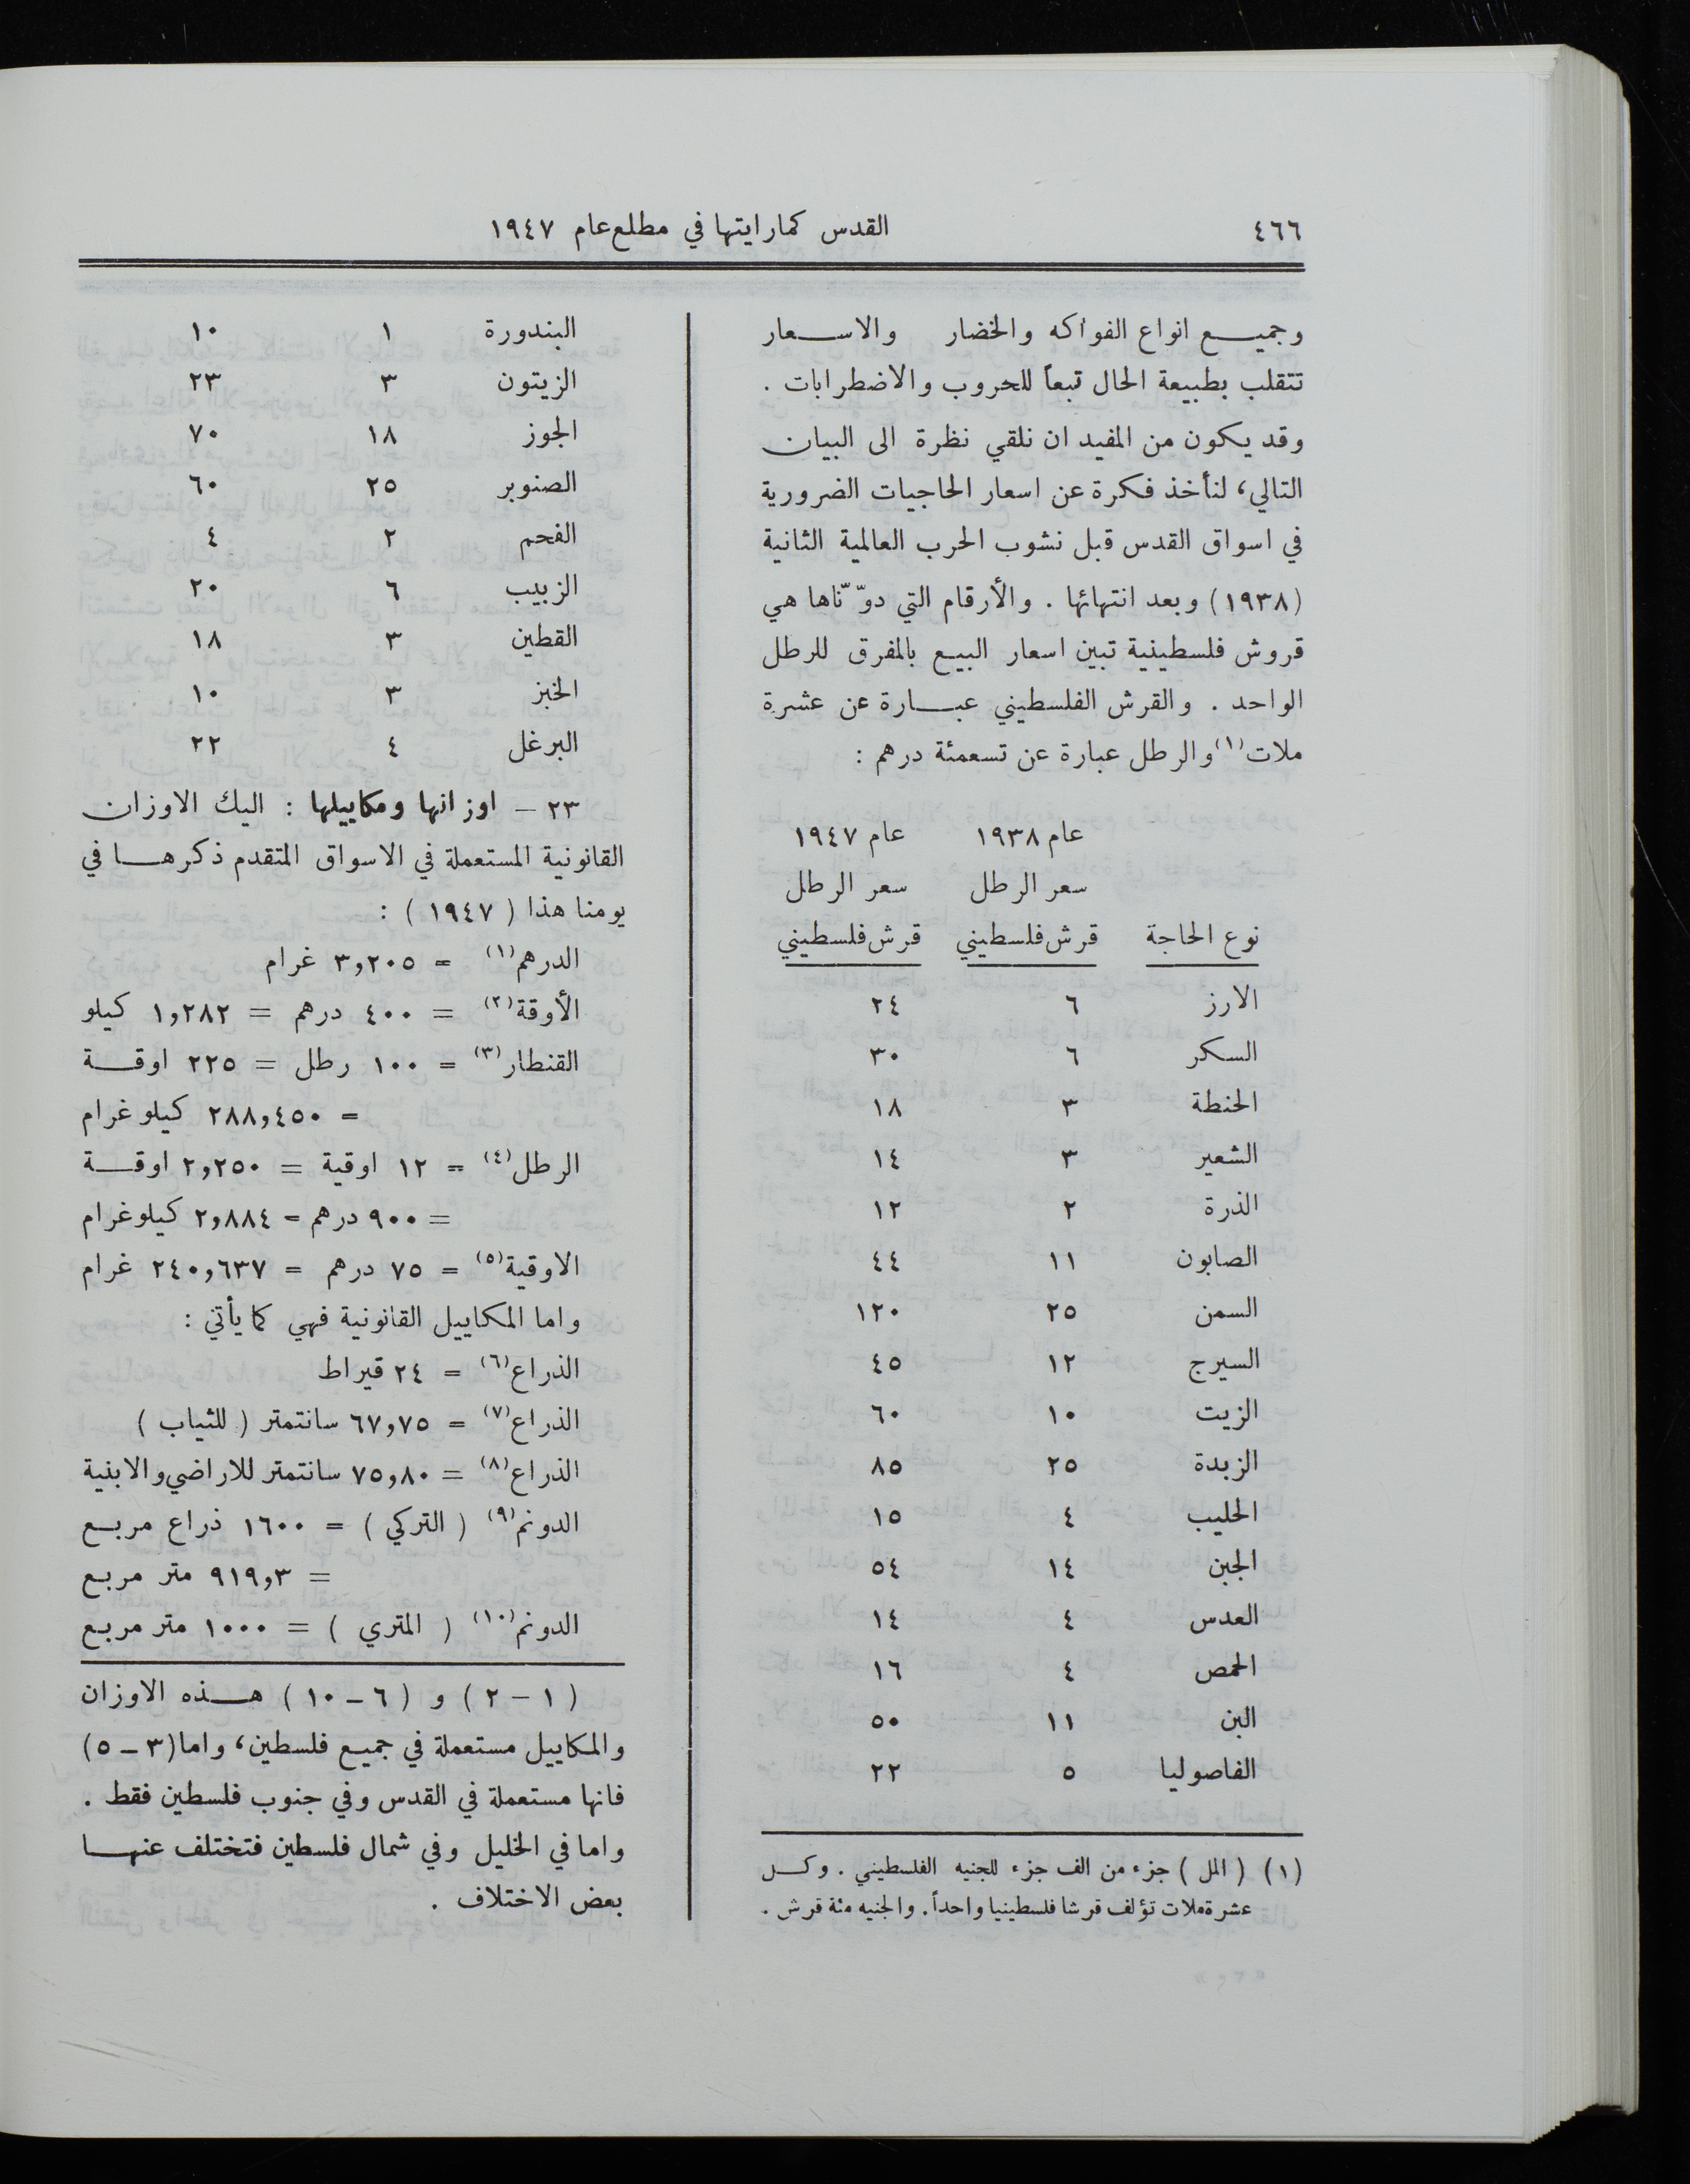 ٤٦٦
القدس كما رايتها في مطلع عام ١٩٤٧
وجميع انواع الفواكه والخضار والاسعار
تتقلب بطبيعة الحال تبعاً للحروب والاضطرابات .
وقد يكون من المفيد ان نلقي نظرة الى البيان
التالي، لنأخذ فكرة عن اسعار الحاجيات الضرورية
في اسواق القدس قبل نشوب الحرب العالمية الثانية
(١٩٣٨) وبعد انتهائها . والأرقام التي دوّنّاها هي
قروش فلسطينية تبين اسعار البيع بالمفرق للرطل
الواحد . والقرش الفلسطيني عبارة عن عشرة
ملات(١) والرطل عبارة عن تسعمئة درهم :
عام ١٩٣٨ عام ١٩٤٧
سعر الرطل سعر الرطل
نوع الحاجة قرش فلسطيني قرش فلسطيني
الارز ٦ ٢٤
السكر ٦ ٣٠
الحنطة ٣ ١٨
الشعير ٣ ١٤
الذرة ٢ ١٢
الصابون ١١ ٤٤
السمن ٢٥ ١٢٠
السيرج ١٢ ٤٥
الزيت ١٠ ٦٠
الزبدة ٢٥ ٨٥
الحليب ٤ ١٥
الجبن ١٤ ٥٤
العدس ٤ ١٤
الحمص ٤ ١٦
البن ١١ ٥٠
الفاصوليا ٥ ٢٢
(١) ( المل ) جزء من الف جزء للجنيه الفلسطيني . وكل
عشرة ملات تؤلف قرشا فلسطينيا واحداً. والجنيه مئة قرش .
البندورة ١ ١٠
الزيتون ٣ ٢٣
الجوز ١٨ ٧٠
الصنوبر ٢٥ ٦٠
الفحم ٢ ٤
الزبيب ٦ ٢٠
القطين ٣ ١٨
الخبز ٣ ١٠
البرغل ٤ ٢٢
٢٣ – اوزانها ومكاييلها : اليك الاوزان
القانونية المستعملة في الاسواق المتقدم ذكرها في
يومنا هذا ( ١٩٤٧ ) :
الدرهم(١) = ٣,٢٠٥ غرام
الأوقة(٢) = ٤٠٠ درهم = ١,٢٨٢ كيلو
القنطار(٣) = ١٠٠ رطل = ٢٢٥ اوقة
= ٢٨٨,٤٥٠ كيلو غرام
الرطل(٤) = ١٢ اوقية = ٢,٢٥٠ اوقة
= ٩٠٠ درهم = ٢,٨٨٤ كيلوغرام
الاوقية(٥) = ٧٥ درهم = ٢٤٠,٦٣٧ غرام
واما المكاييل القانونية فهي كما يأتي :
الذراع(٦) = ٢٤ قيراط
الذراع(٧) = ٦٧,٧٥ سانتمتر ( للثياب )
الذراع(٨) = ٧٥,٨٠ سانتمتر للاراضي والابنية
الدونم(٩) ( التركي ) = ١٦٠٠ ذراع مربع
= ٩١٩,٣ متر مربع
الدونم(١٠) ( المتري ) = ١٠٠٠ متر مربع
( ١ – ٢ ) و ( ٦ – ١٠ ) هذه الاوزان
والمكاييل مستعملة في جميع فلسطين، واما (٣ – ٥)
فانها مستعملة في القدس وفي جنوب فلسطين فقط .
واما في الخليل وفي شمال فلسطين فتختلف عنها
بعض الاختلاف .